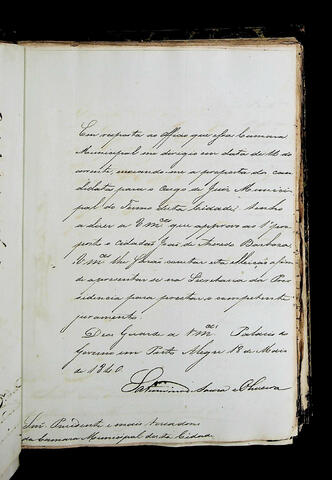 Em resposta ao Officio que essa Camara
Municipal me dirigio em data de 11 do
corrente, enviando me a proposta de can
didatos para o Cargo de Juiz Municici
pal do Termo desta Cidade; tenho
a dizer a Vmces que approvo ao 1º pro
posto o Cidadão José de Azevedo Barbosa.
Vmces lhe farão constar esta eleição a fim
de apresentar se na Secretaria da Pre
sidencia para prestar o competente
juramento.
Deos Guarde a Vmces Palacio do
Governo em Porto Alegre 18 de Maio
de 1840.
Saturnino Souza e Oliveira
Snrs. Presidente e mais vereadores
da Camara Municipal desta Cidade.